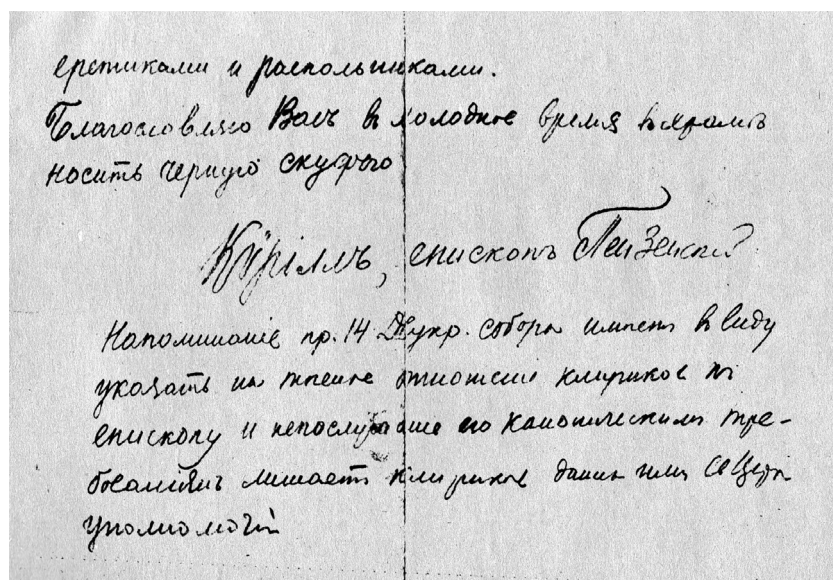 еретиками и раскольниками.
Благословляю Васъ в холодное время в храмѣ
носить черную скуфью
Кѵріллъ, епископъ Пензенскій
Напоминаніе пр. 14 Двукр. собора имѣетъ в виду
указать на отношение клириков къ
епископу и непослушание его каноническимъ тре-
бованіямъ лишаетъ клириков данных имъ
уполномочій